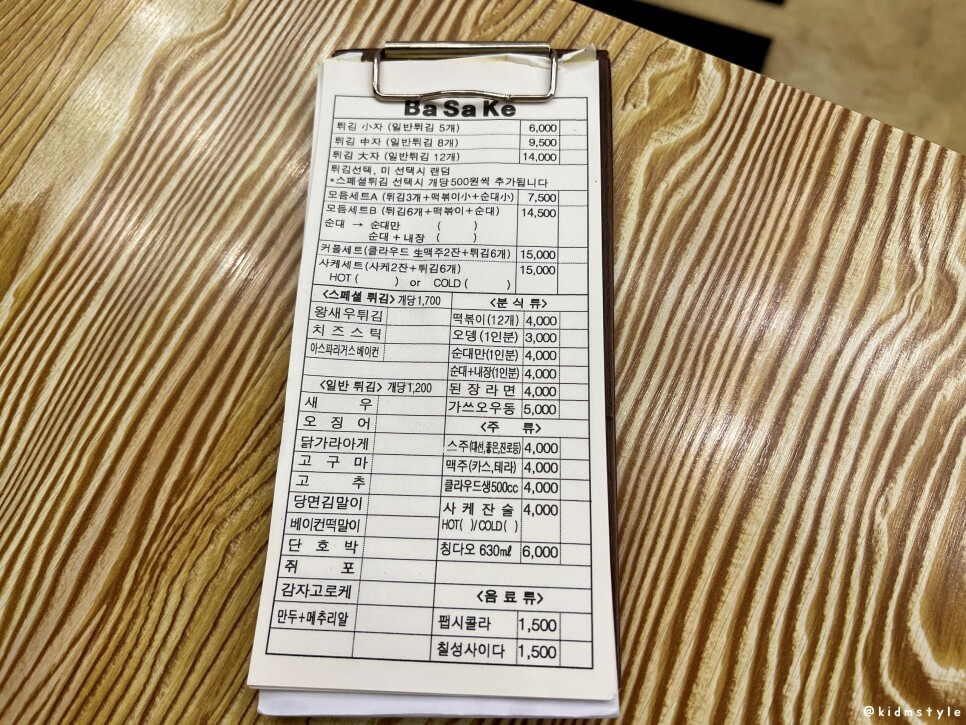 BaSaKe
튀김 小자 (일반튀김 5개) 6,000
튀김 中자 (일반튀김 8개) 9,500
튀김 大자 (일반튀김 12개) 14,000
튀김선택, 미 선택시 랜덤
*스페셜튀김 선택시 개당500원씩 추가됩니다
모듬세트A (튀김3개+떡볶이小+순대小) 7,500
모듬세트B (튀김6개+떡볶이+순대) 14,500
순대 → 순대만 ( )
순대+내장 ( )
커플세트(클라우드 生맥주2잔+튀김6개) 15,000
사케세트(사케2잔+튀김6개) 15,000
HOT ( ) or COLD ( )
<스페셜 튀김> 개당1,700
왕새우튀김
치즈스틱
아스파라거스베이컨
<일반 튀김> 개당1,200
새우
오징어
닭가라아게
고구마
고추
당면김말이
베이컨떡말이
단호박
쥐포
감자고로케
만두+메추리알
<분식류>
떡볶이(12개) 4,000
오뎅(1인분) 3,000
순대만(1인분) 4,000
순대+내장(1인분) 4,000
된장라면 4,000
가쓰오우동 5,000
<주류>
스주(대선,좋은,진로등) 4,000
맥주(카스,테라) 4,000
클라우드생500cc 4,000
사케잔술 4,000
HOT( )/COLD( )
칭다오 630㎖ 6,000
<음료류>
팹시콜라 1,500
칠성사이다 1,500
@kidmstyle